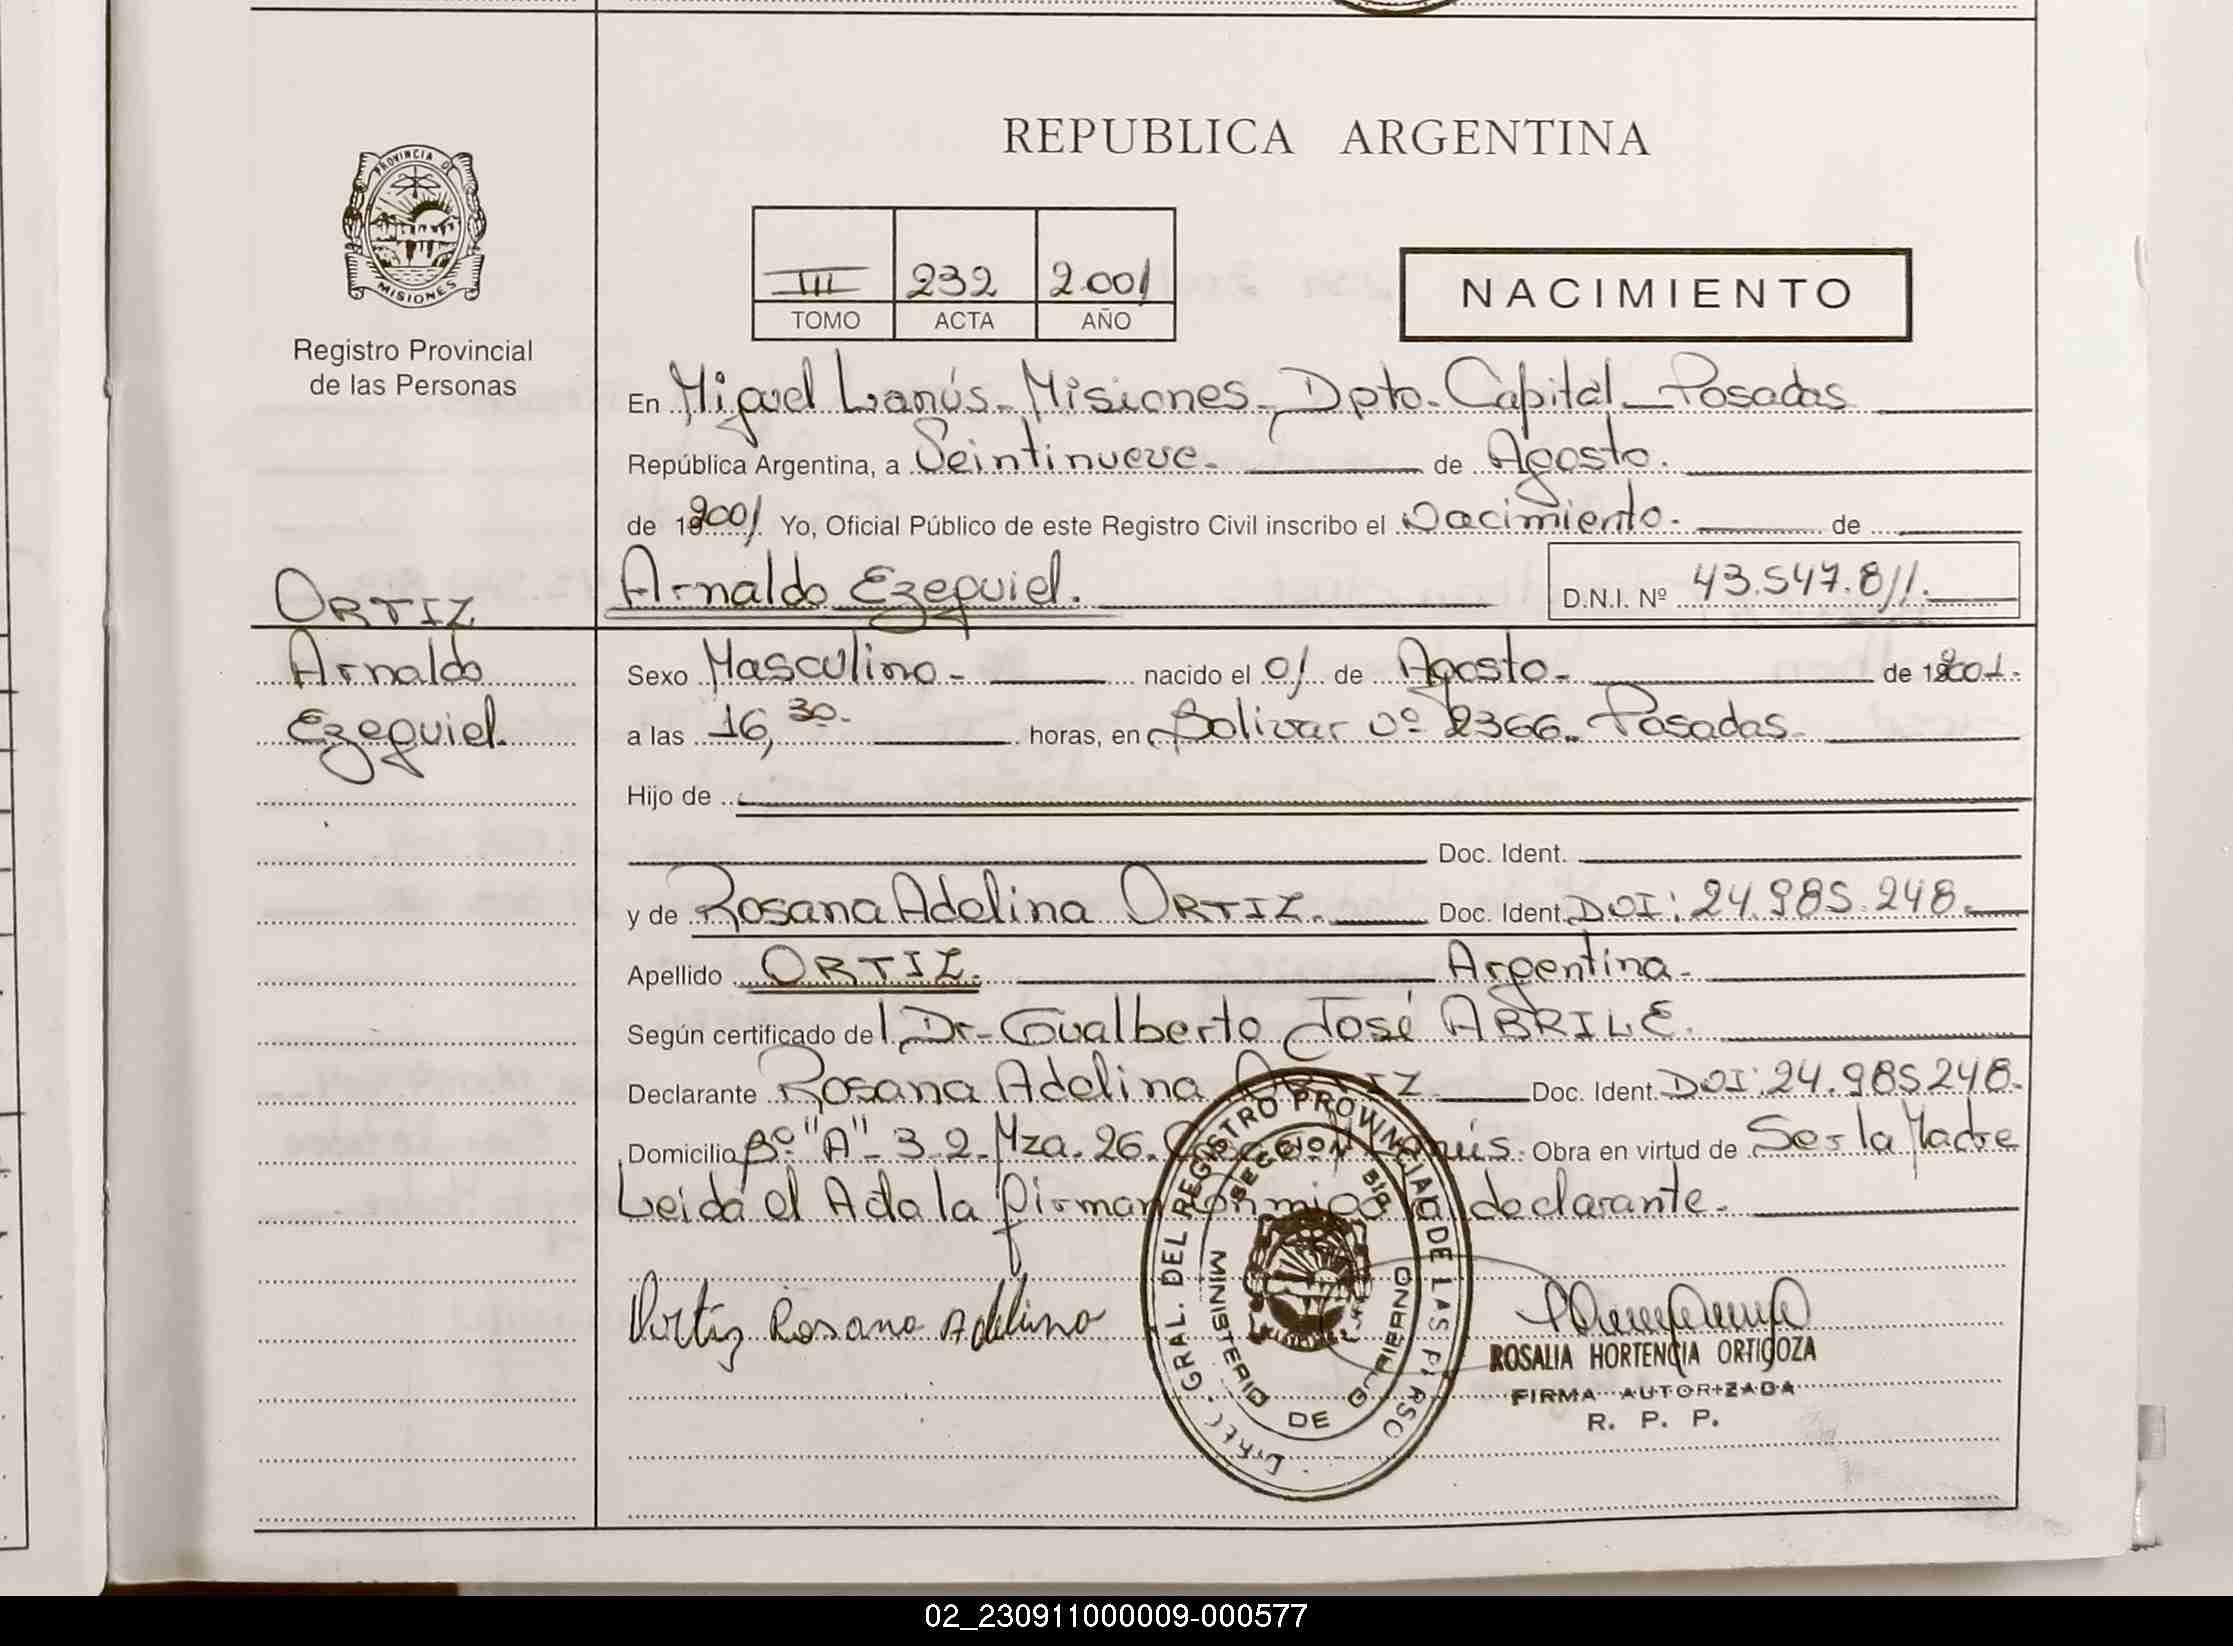 REPUBLICA ARGENTINA
PROVINCIA DE
MISIONES
Registro Provincial
de las Personas
III 232 2.001
TOMO ACTA AÑO
NACIMIENTO
En Miguel Lanús - Misiones - Dpto. Capital - Posadas
República Argentina, a Veintinueve. de Agosto.
de 19 2001 Yo, Oficial Público de este Registro Civil inscribo el Nacimiento. de
Arnaldo Ezequiel. D.N.I. Nº 43.547.811.
ORTIZ
Arnaldo
Ezequiel.
Sexo Masculino - nacido el 01 de Agosto - de 19 2001.
a las 16,30. horas, en Bolivar nº 2366. Posadas
Hijo de
Doc. Ident.
y de Rosana Adelina ORTIZ. Doc. Ident. DOI: 24.985.248.
Apellido ORTIZ. Argentina.
Según certificado del Dr. Gualberto José ABRILE.
Declarante Rosana Adelina ORTIZ Doc. Ident. DOI: 24.985248.
Domicilio Bº "A" 3.2. Mza. 26. Lanús. Obra en virtud de Ser la Madre
Leida el Acta la firman conmigo la declarante.
Ortiz Rosana Adelina
GRAL. DEL REGISTRO PROVINCIAL DE LAS PERSO
SECCION
MINISTERIO DE GOBIERNO
ROSALIA HORTENCIA ORTIGOZA
FIRMA AUTORIZADA
R. P. P.
02_230911000009-000577